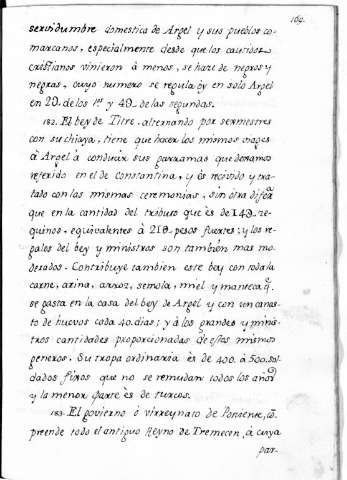 169.
servidumbre domestica de Argel y sus pueblos co-
marcanos, especialmente desde que los cautivos
cristianos vinieron à menos, se haze de negros y
negras, cuyo numero se regula oy en solo Argel
en 2D. de los 1.os y 4D. de las segundas.
182. El bey de Titre, alternando por semestres
con su chiaya, tiene que hacer los mismos viages
à Argel à conducir sus garramas que dexamos
referido en el de Constantina, y es recivido y tra-
tado con las mismas ceremonias, sin otra difer.a
que en la cantidad del tributo que ès de 14D. ze-
quinos, equivalentes à 21D. pesos fuertes; y los re-
galos del bey y ministros son tambien mas mo-
derados. Contribuye tambien este bey con toda la
carne, arina, arroz, semola, miel y manteca q.e
se gasta en la casa del bey de Argel y con un canas-
to de huevos cada 40. dias; y à los grandes y minis-
tros cantidades proporcionadas de estos mismos
generos. Su tropa ordinaria ès de 400. à 500. sol-
dados fixos que no se remudan todos los años
y la menor parte ès de turcos.
183. El govierno ò virreynato de Poniente, com-
preende todo el antiguo Reyno de Tremecen, à cuya
par-